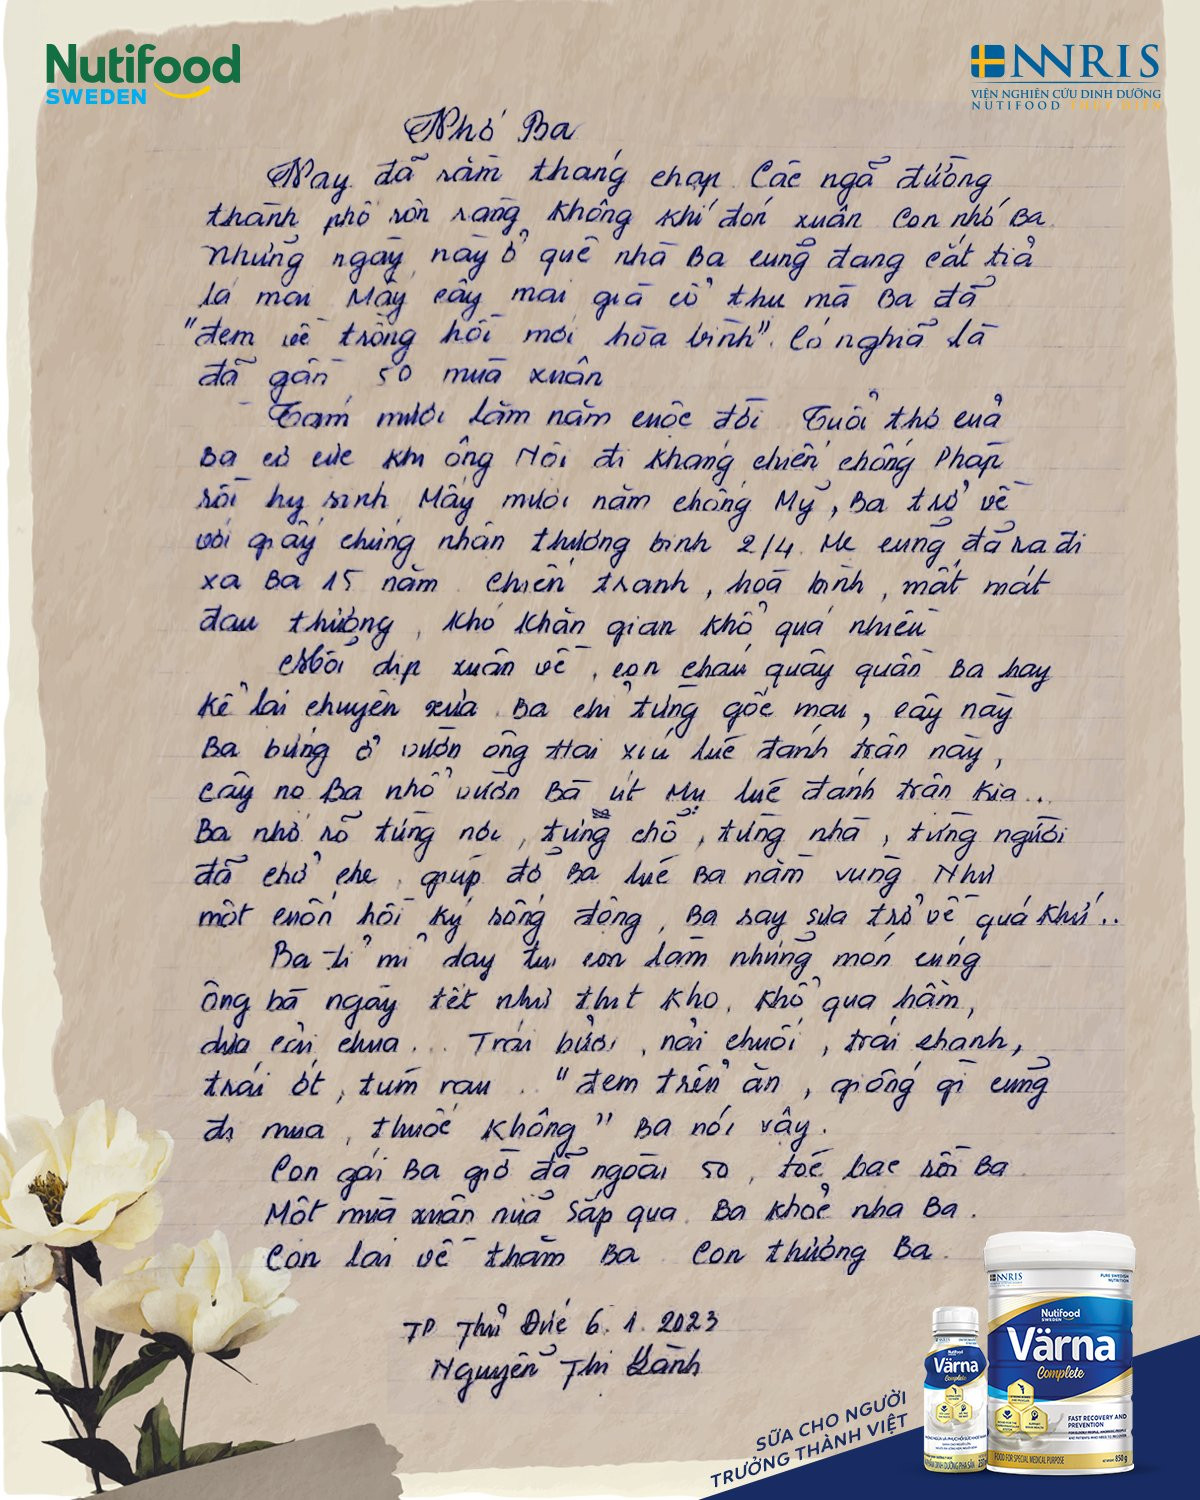 Nutifood
SWEDEN
NNRIS
VIỆN NGHIÊN CỨU DINH DƯỠNG
NUTIFOOD THỤY ĐIỂN
Nhớ Ba
Nay đã rằm tháng chạp. Các ngã đường
thành phố rộn ràng không khí đón xuân. Con nhớ Ba.
Những ngày này ở quê nhà Ba cũng đang cắt tỉa
lá mai. Mấy cây mai già cổ thụ mà Ba đã
"đem về trồng hồi mới hòa bình". Có nghĩa là
đã gần 50 mùa xuân
Tám mươi lăm năm cuộc đời. Tuổi thơ của
Ba cơ cực khi ông Nội đi kháng chiến chống Pháp
rồi hy sinh. Mấy mươi năm chống Mỹ, Ba trở về
với giấy chứng nhận thương binh 2/4. Mẹ cũng đã ra đi
xa Ba 15 năm. Chiến tranh, hoà bình, mất mát
đau thương, khó khăn gian khổ quá nhiều
Mỗi dịp xuân về, con cháu quây quần Ba hay
kể lại chuyện xưa. Ba chỉ từng gốc mai, cây này
Ba bứng ở vườn ông Hai Xíu lúc đánh trận này,
cây nọ Ba nhổ vườn Bà Út Mụ lúc đánh trận kia...
Ba nhớ rõ từng nơi, từng chỗ, từng nhà, từng người
đã chở che, giúp đỡ Ba lúc Ba nằm vùng. Như
một cuốn hồi ký sống động, Ba say sưa trở về quá khứ...
Ba tỉ mỉ dạy tụi con làm những món cúng
ông bà ngày tết như thịt kho, khổ qua hầm,
dưa cải chua... Trái bưởi, nải chuối, trái chanh,
trái ớt, túm rau... "đem trển ăn, giống gì cũng
đi mua, thuốc không" Ba nói vậy.
Con gái Ba giờ đã ngoài 50, tóc bạc rồi Ba.
Một mùa xuân nữa sắp qua. Ba khoẻ nha Ba.
Con lại về thăm Ba. Con thương Ba.
TP Thủ Đức 6.1.2023
Nguyễn Thị Lành
SỮA CHO NGƯỜI
TRƯỞNG THÀNH VIỆT
Nutifood
Värna
Complete
NNRIS
PURE SWEDISH
NUTRITION
Nutifood
SWEDEN
Värna
Complete
FAST RECOVERY AND
PREVENTION
FOOD FOR SPECIAL MEDICAL PURPOSE
850 g